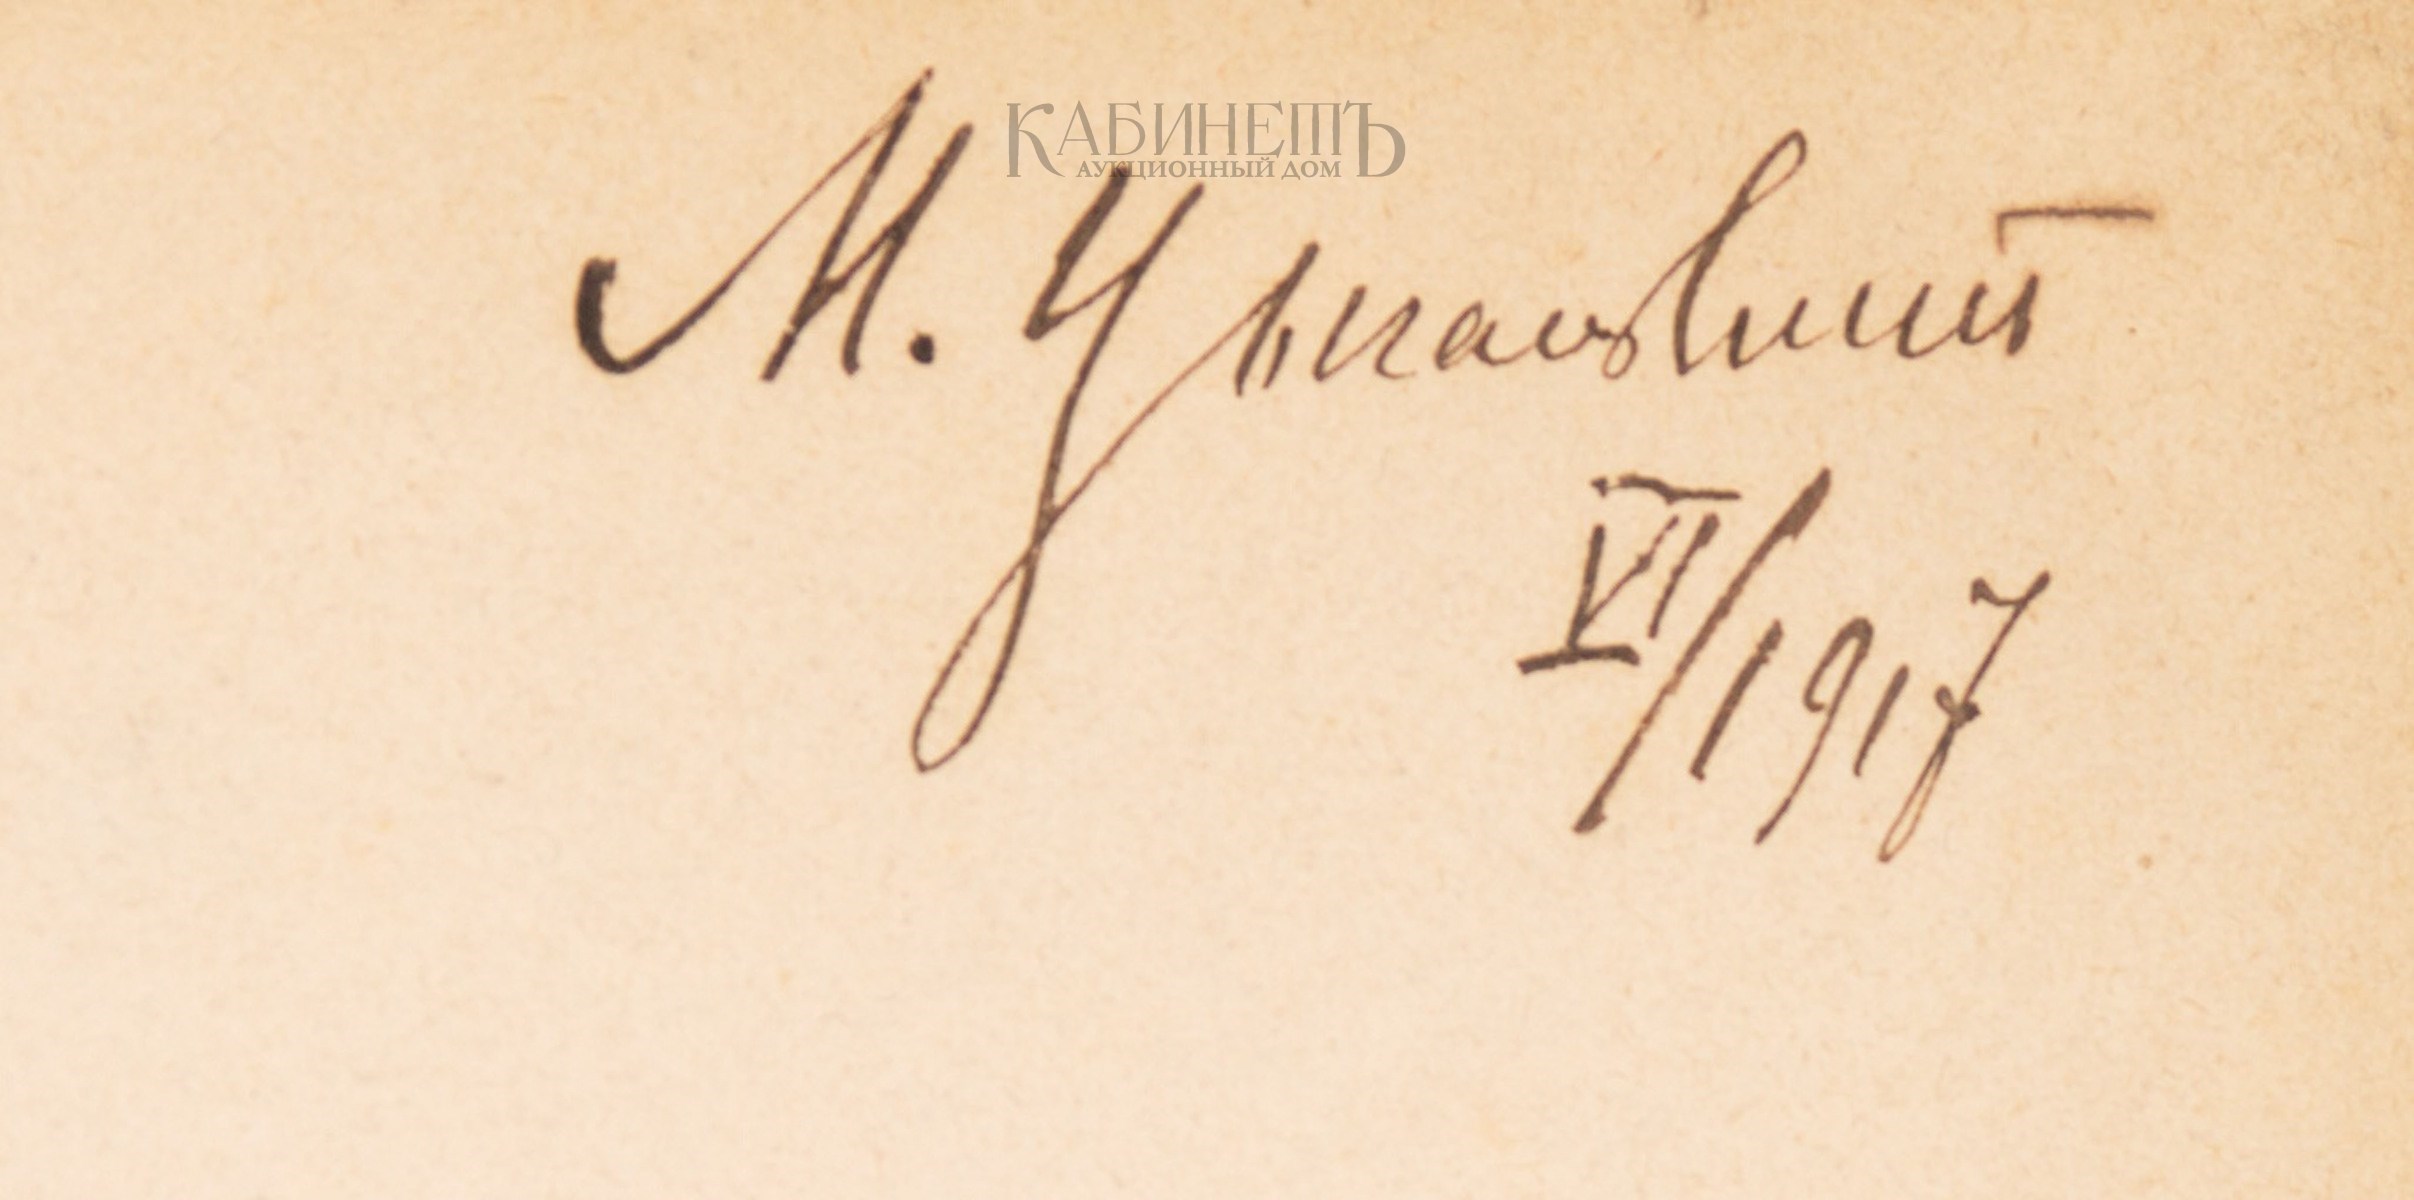 КАБИНЕТЪ
АУКЦИОННЫЙ ДОМ
М.
VI/1917